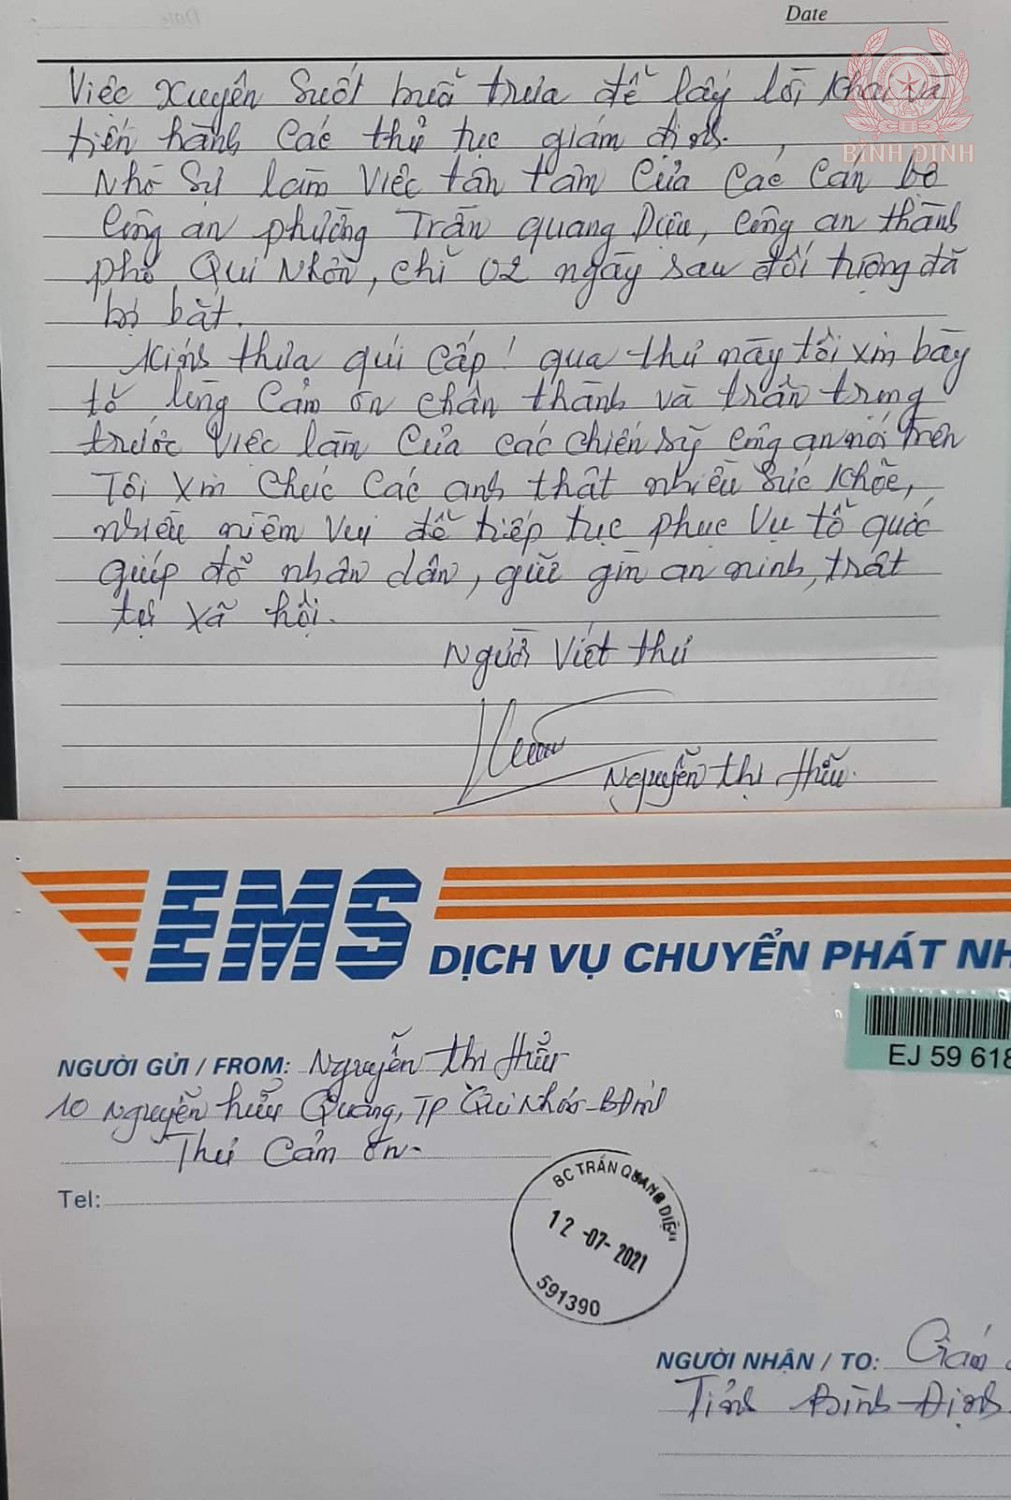 Date
BÌNH ĐỊNH
Việc xuyên suốt buổi trưa để lấy lời khai và
tiến hành các thủ tục giám định.
Nhờ sự làm việc tận tâm của các cán bộ
công an phường Trần Quang Diệu, công an thành
phố Qui Nhơn, chỉ 02 ngày sau đối tượng đã
bị bắt.
Kính thưa quí cấp! qua thư này tôi xin bày
tỏ lòng cảm ơn chân thành và trân trọng
trước việc làm của các chiến sỹ công an nói trên
Tôi xin chúc các anh thật nhiều sức khỏe,
nhiều niềm vui để tiếp tục phục vụ tổ quốc
giúp đỡ nhân dân, giữ gìn an ninh, trật
tự xã hội.
Người viết thư
Nguyễn Thị Hữu
EMS
DỊCH VỤ CHUYỂN PHÁT NH
EJ 59 618
NGƯỜI GỬI / FROM: Nguyễn Thị Hữu
10 Nguyễn Hữu Quang, TP Qui Nhơn - BĐịnh
Thư Cảm ơn.
Tel:
BC TRẦN QUANG DIỆU
12-07-2021
591390
NGƯỜI NHẬN / TO: Giám
Tỉnh Bình Định